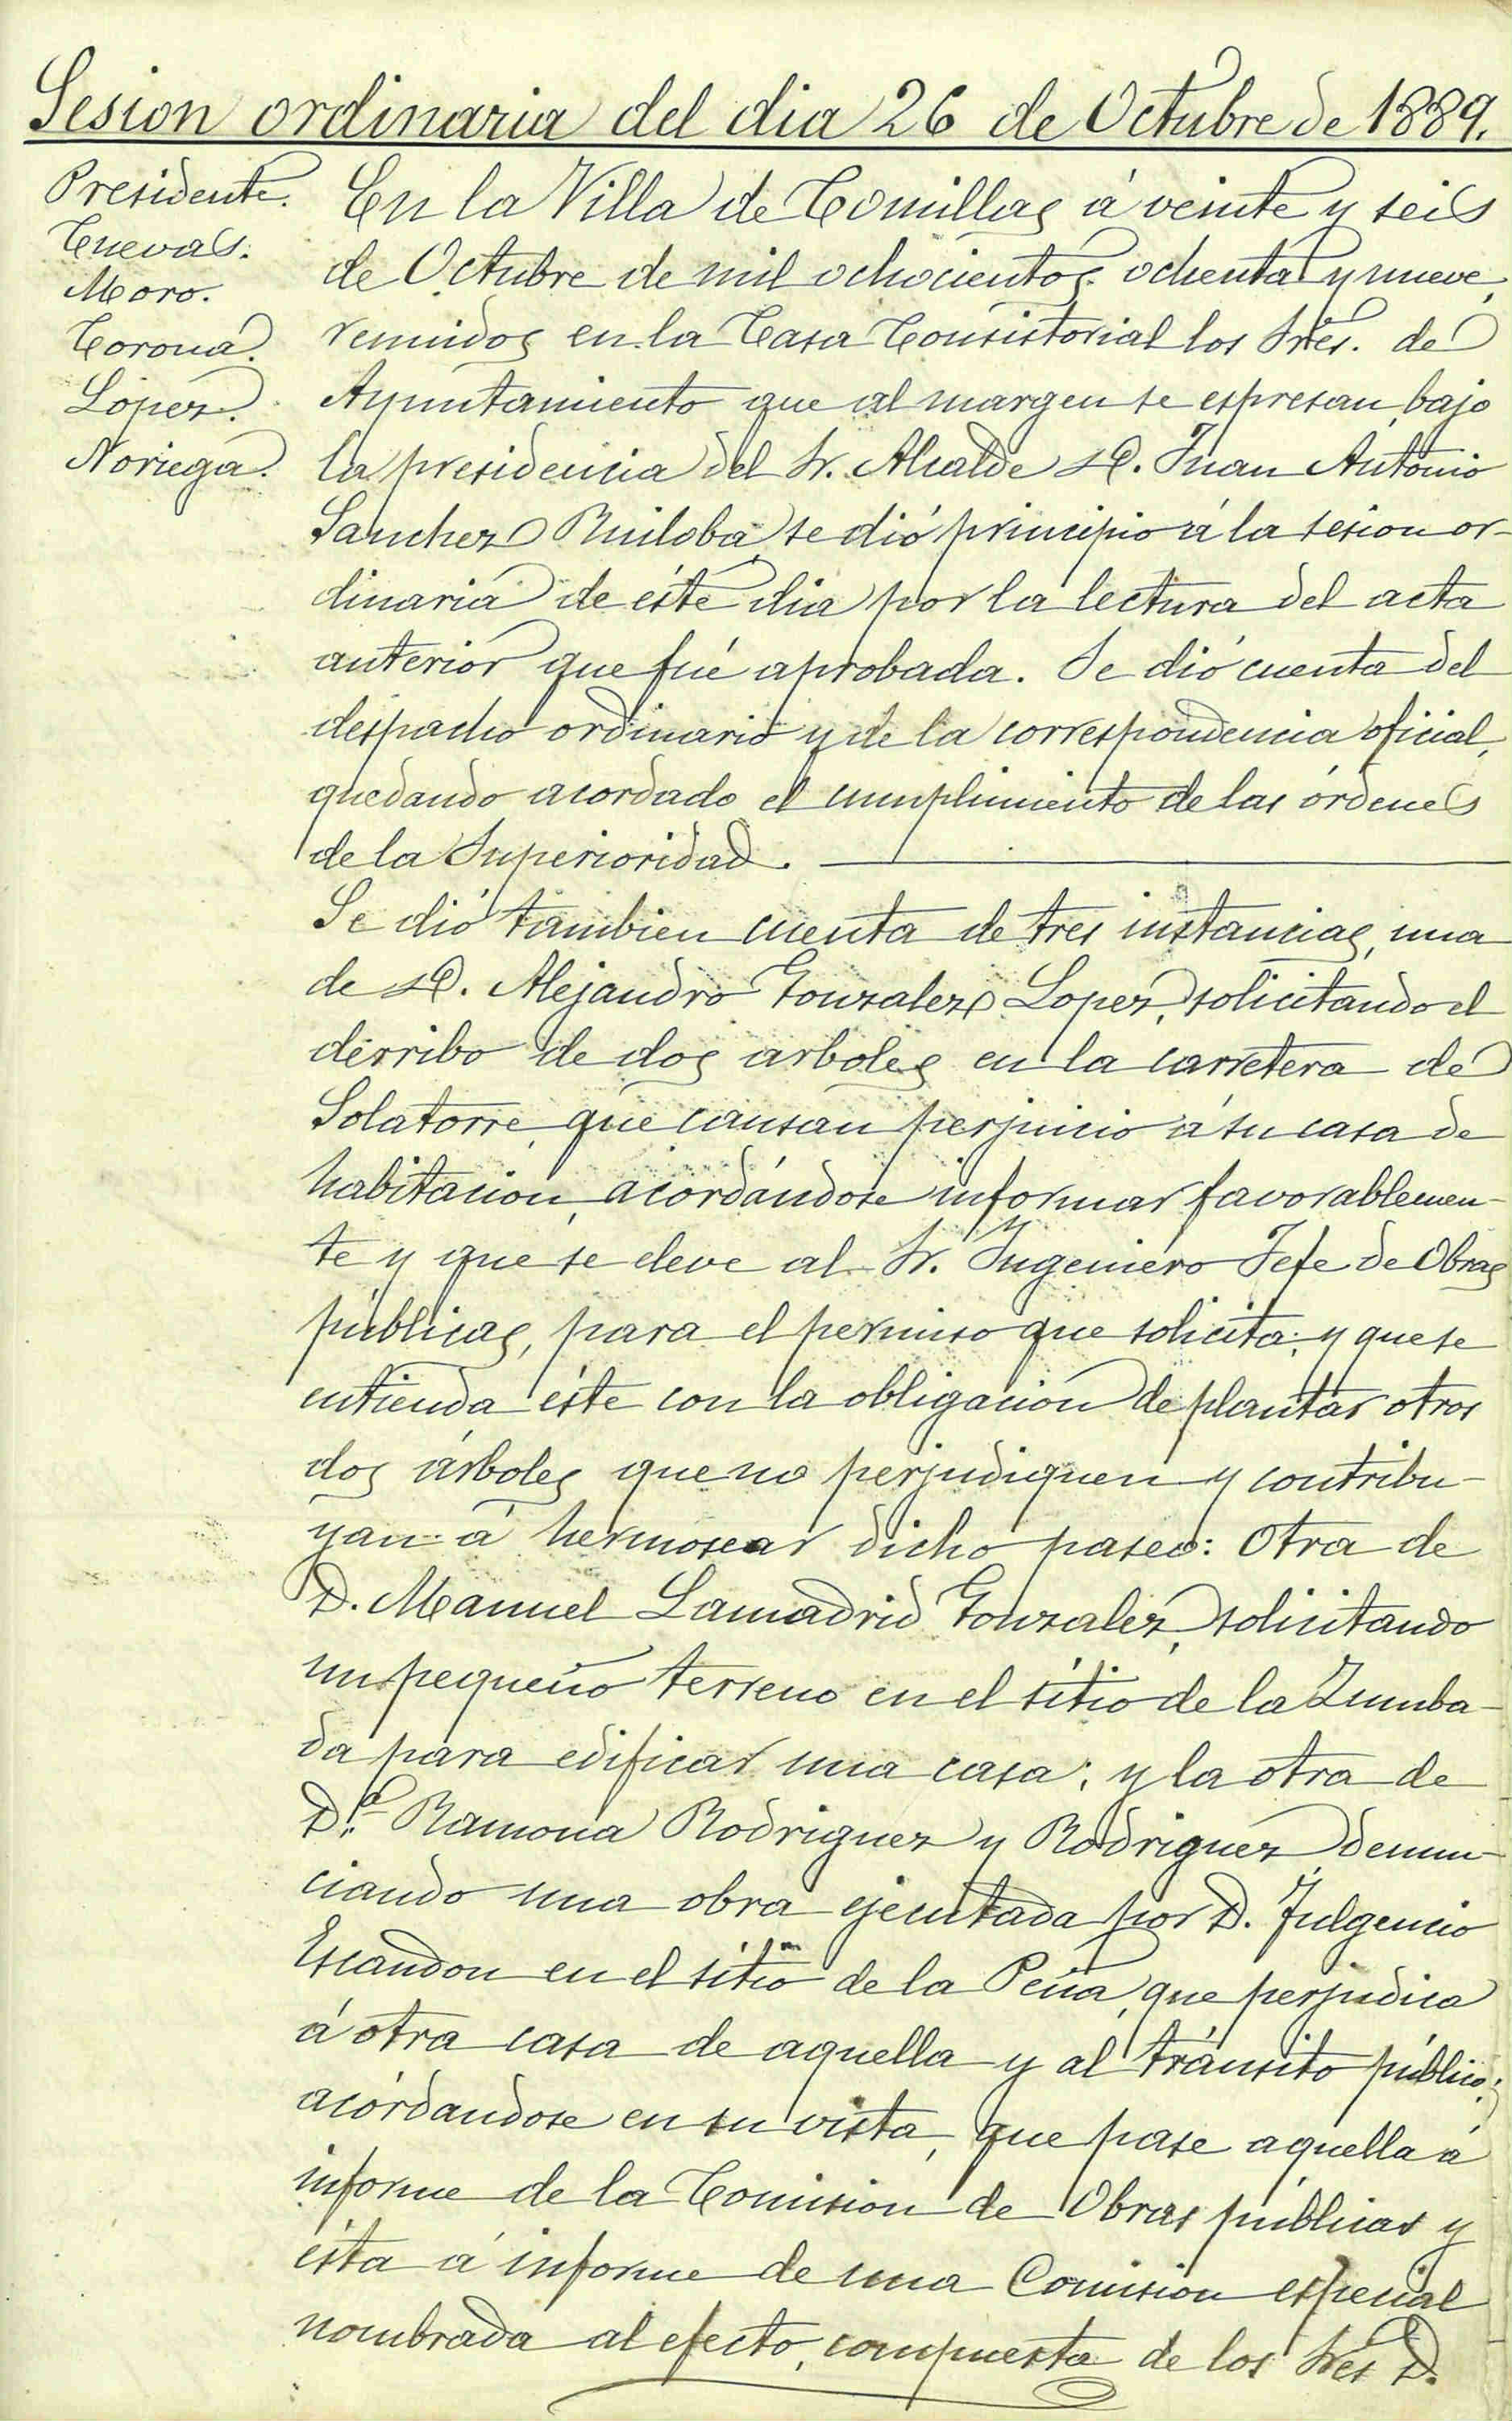 Sesion ordinaria del dia 26 de Octubre de 1889.
Presidente.
Cuevas.
Moro.
Corona.
López.
Noriega.
En la Villa de Comillas á veinte y seis
de Octubre de mil ochocientos ochenta y nueve,
reunidos en la Casa Consistorial los Sres. de
Ayuntamiento que al margen se espresan, bajo
la presidencia del Sr. Alcalde D. Juan Antonio
Sanchez Ruiloba, se dió principio á la sesion or-
dinaria de éste dia por la lectura del acta
anterior que fué aprobada. Se dió cuenta del
despacho ordinario y de la correspondencia oficial,
quedando acordado el cumplimiento de las órdenes
de la Superioridad.
Se dió tambien cuenta de tres instancias, una
de D. Alejandro Gonzalez Lopez, solicitando el
derribo de dos arboles en la carretera de
Solatorre, que causan perjuicio á su casa de
habitacion, acordándose informar favorablemen-
te y que se eleve al Sr. Ingeniero Jefe de Obras
públicas, para el permiso que solicita; y que se
entienda éste con la obligacion de plantar otros
dos árboles que no perjudiquen y contribu-
yan á hermosear dicho paseo: Otra de
D. Manuel Lamadrid Gonzalez, solicitando
un pequeño terreno en el sitio de la Zumba-
da para edificar una casa; y la otra de
D.ª Ramona Rodriguez y Rodriguez denun-
ciando una obra ejecutada por D. Fulgencio
Escandon en el sitio de la Peña, que perjudica
á otra casa de aquella y al tránsito público;
acordandose en su vista, que pase aquella á
informe de la Comision de Obras públicas y
ésta á informe de una Comision especial
nombrada al efecto, compuesta de los Sres D.